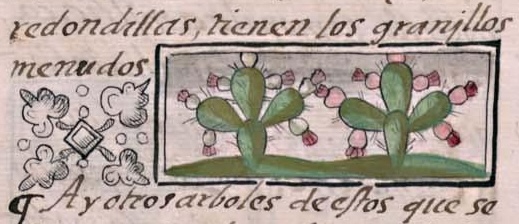 redondillas, tienen los granillos
menudos
¶ Ay otros arboles de estos que se